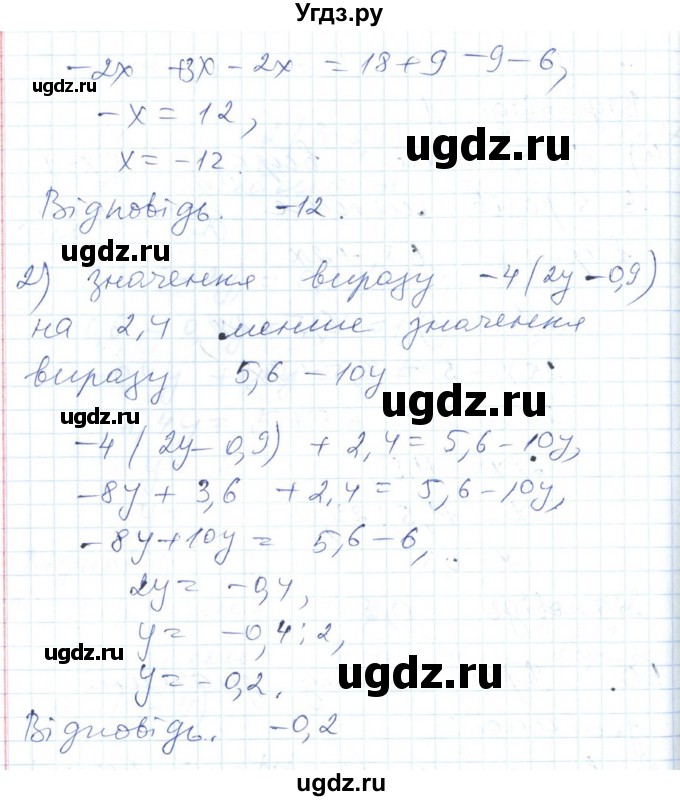 Угдз.ру
-2x +3x - 2x = 18 + 9 - 9 - 6,
угдз.ру
-x = 12,
ugdz.ru
x = -12.
Відповідь. -12.
ugdz.ru
2) значення виразу -4(2y - 0,9)
на 2,4 менше значення
ugdz.ru
виразу 5,6 - 10y
ugdz.ru
-4(2y - 0,9) + 2,4 = 5,6 - 10y,
-8y + 3,6 + 2,4 = 5,6 - 10y,
ugdz.ru
-8y + 10y = 5,6 - 6,
2y = -0,4,
y = -0,4 : 2,
ugdz.ru
ugdz.ru
y = -0,2.
Відповідь. -0,2
ugdz.ru
ugdz.ru